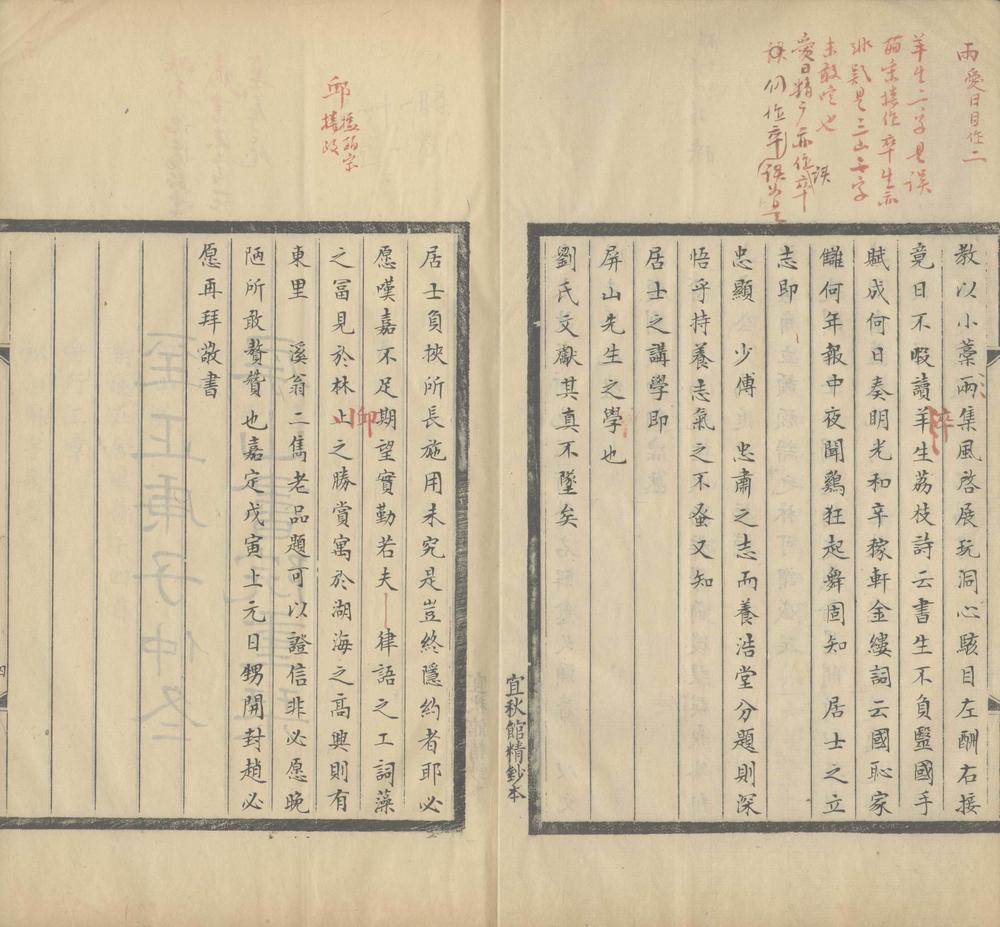 兩愛日目作二
羊生二字是誤
皕宋樓作卒生亦
非疑是三山二字
未敢定也
愛日精廬亦作卒
誤
教以小藁兩集風啓展玩洞心駭目左酬右接
竟日不暇讀羊生荔枝詩云書生不負豎國手
卒
賦成何日奏明光和辛稼軒金縷詞云國恥家
讎何年報中夜聞鷄狂起舞固知 居士之立
志即
忠顯 少傅 忠肅之志而養浩堂分題則深
悟乎持養志氣之不蚤又知
居士之講學即
屏山先生之學也
劉氏文獻其真不墜矣
宜秋館精鈔本
邱
據皕宋
樓改
居士負挾所長施用未究是豈終隱約者耶必
愿嘆嘉不足期望實勤若夫 律語之工詞藻
之富見於林上之勝賞寓於湖海之高興則有
邱
東里 溪翁二雋老品題可以證信非必愿晚
陋所敢贅贊也嘉定戊寅上元日甥開封趙必
愿再拜敬書
四